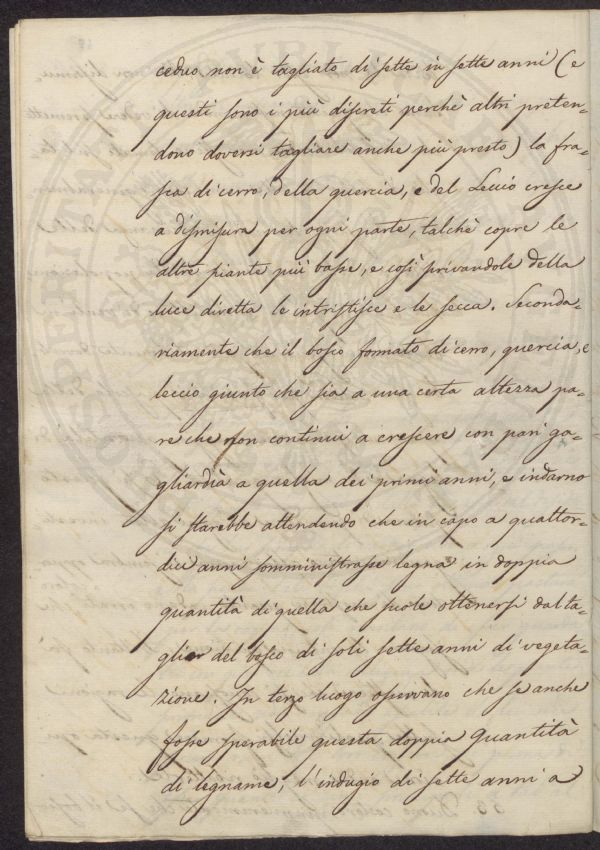 ceduo non è tagliato di sette in sette anni (e
questi sono i più discreti perchè altri preten-
dono doversi tagliare anche più presto) la fra-
sca di cerro, della quercia, e del Leccio cresce
a dismisura per ogni parte, talchè copre le
altre piante più basse, e così privandole della
luce diretta le intristisce e le secca. Seconda-
riamente che il bosco formato di cerro, quercia, e
leccio giunto che sia a una certa altezza pa-
re che non continui a crescere con pari ga-
gliardìa a quella dei primi anni, e indarno
si starebbe attendendo che in capo a quattor-
dici anni somministrasse legna in doppia
quantità di quella che suole ottenersi dal ta-
glio del bosco di soli sette anni di vegeta-
zione. In terzo luogo osservano che se anche
fosse sperabile questa doppia quantità
di legname, l'indugio di sette anni a